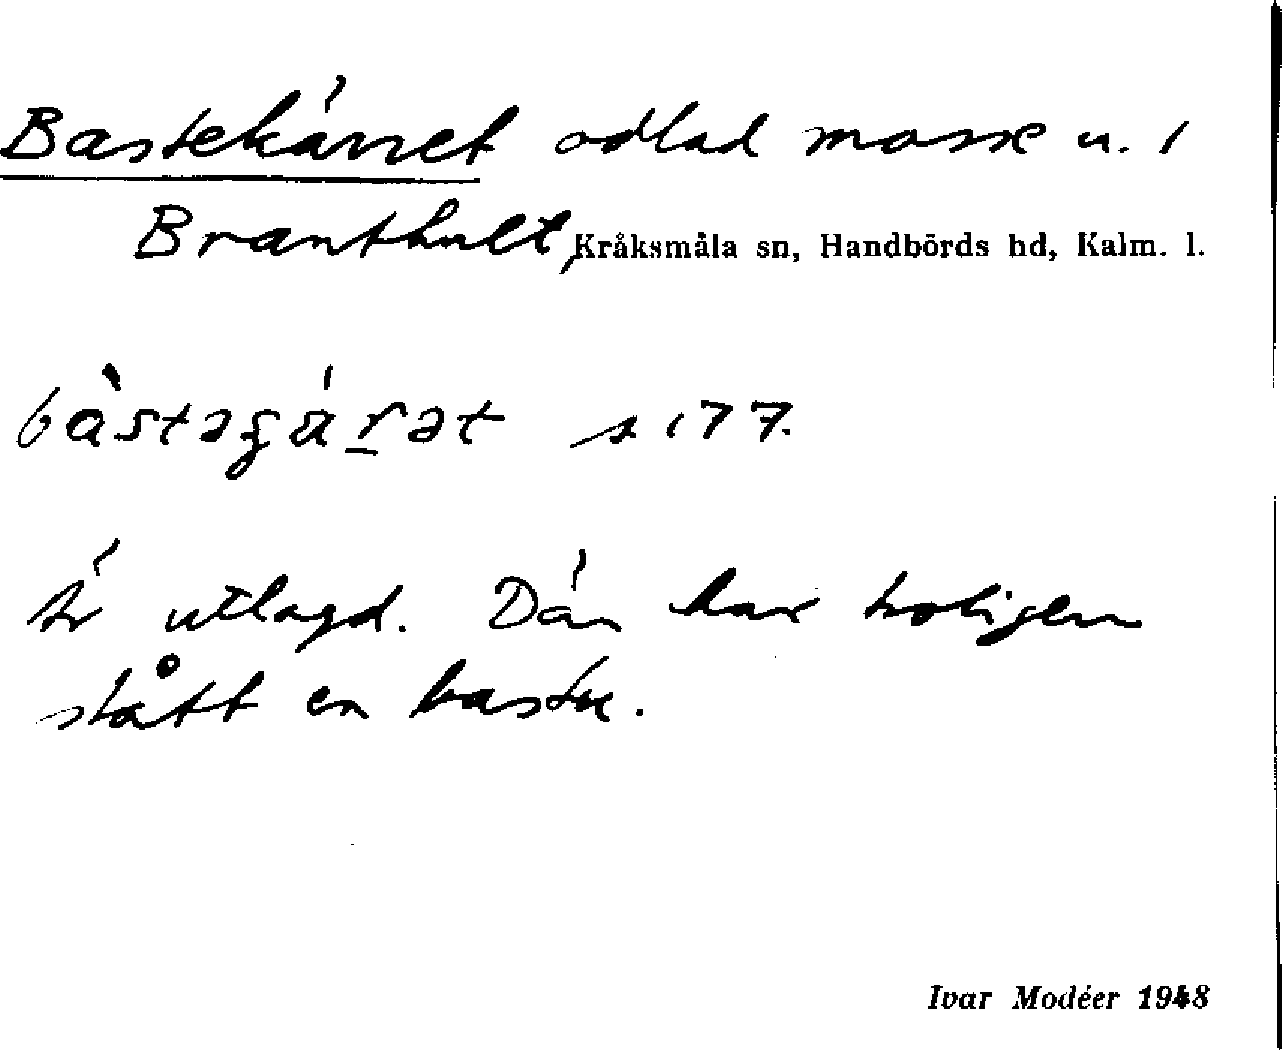 Bastekärret odlad mosse u. 1
Branthult, Kråksmåla sn, Handbörds hd, Kalm. l.
bàstəgäŕət s 177.
Är utlagd. Där har troligen
stått en bastu.
Ivar Modéer 1948